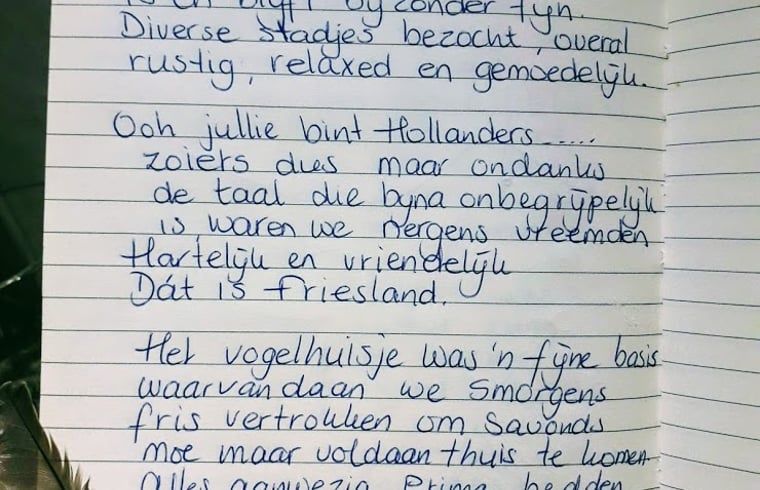 is en blijft bijzonder fijn.
Diverse stadjes bezocht, overal
rustig, relaxed en gemoedelijk.
Ooh jullie bint Hollanders .....
zoiers dus maar ondanks
de taal die byna onbegrijpelijk
is waren we nergens vreemden
Hartelijk en vriendelijk
Dát is Friesland.
Het vogelhuisje was 'n fijne basis
waarvandaan we smorgens
fris vertrokken om savonds
moe maar voldaan thuis te komen
Alles aanwezig Prima bedden